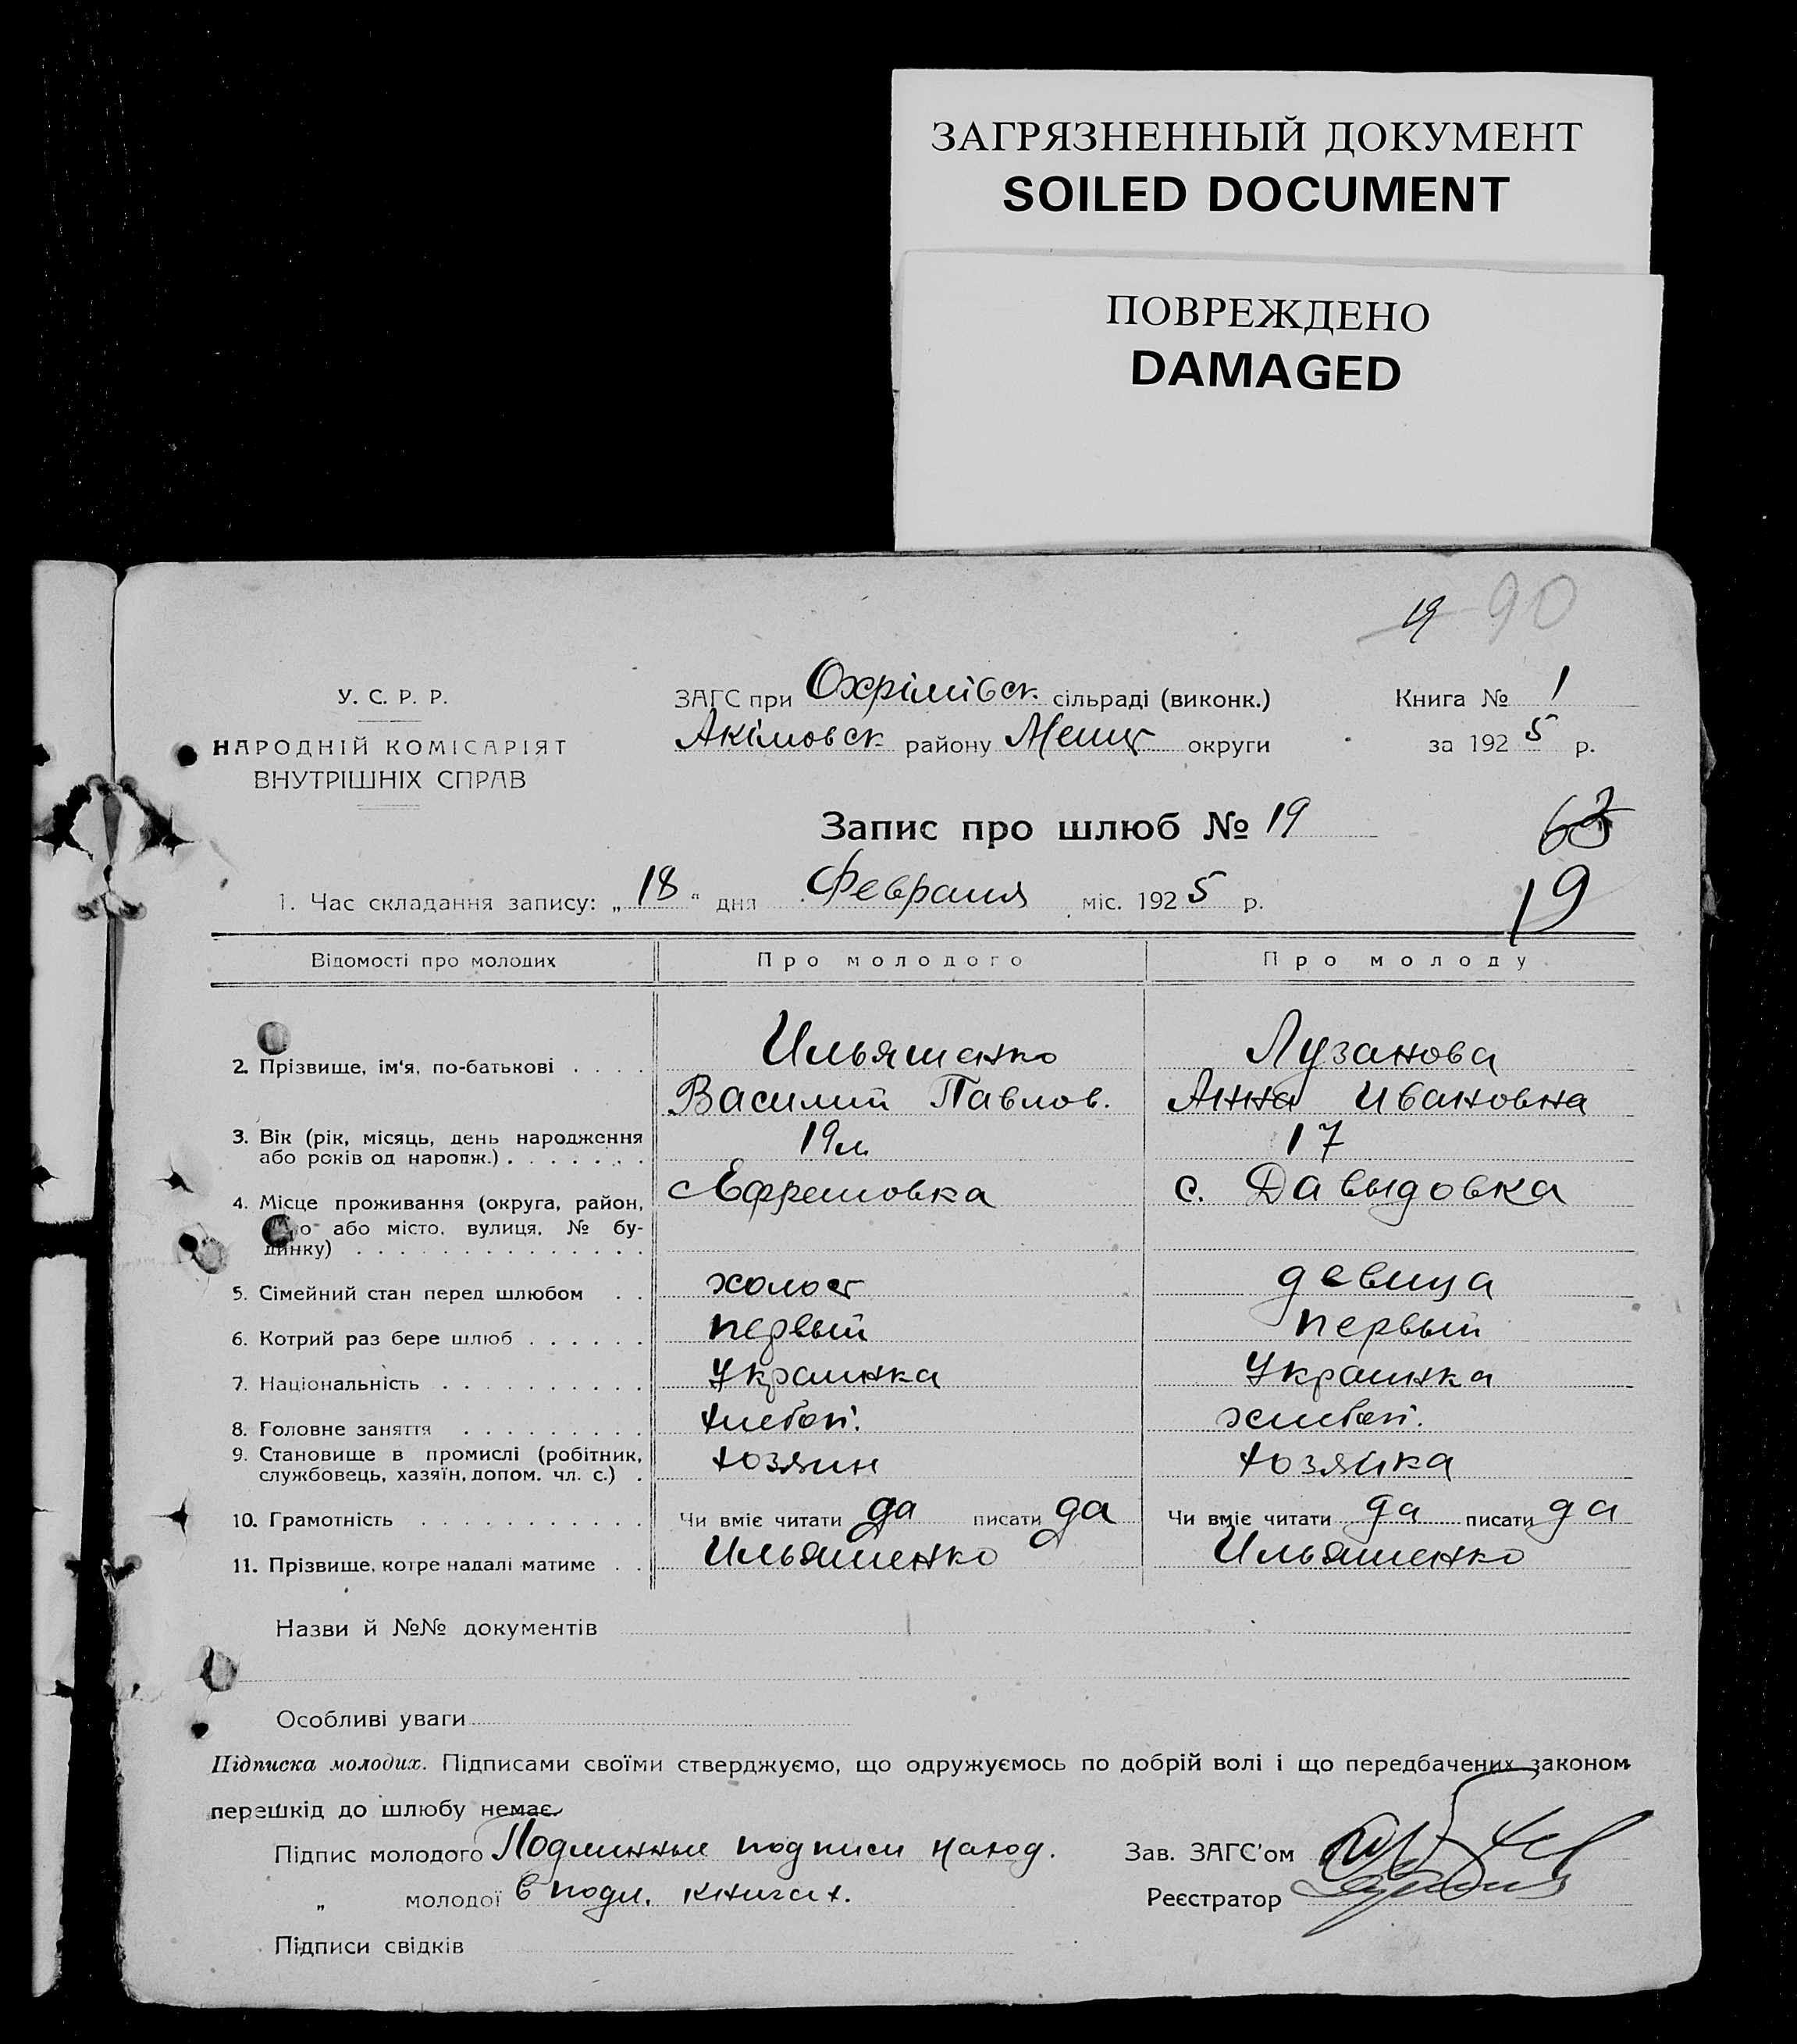 ЗАГРЯЗНЕННЫЙ ДОКУМЕНТ
SOILED DOCUMENT
ПОВРЕЖДЕНО
DAMAGED
19 90
У. С. Р. Р.
НАРОДНІЙ КОМІСАРІЯТ
ВНУТРІШНІХ СПРАВ
ЗАГС при Охрімівск. сільраді (виконк.)
Акімовск. району Меліт округи
Книга № 1
за 1925 р.
Запис про шлюб № 19
63
19
1. Час складання запису: „18“ дня Февраля міс. 1925 р.
Відомості про молодих Про молодого Про молоду
2. Прізвище, ім'я, по-батькові . . . . Ильяшенко Лузанова
Василий Павлов. Анна Ивановна
3. Вік (рік, місяць, день народження 19 л. 17
або років од народж.) . . . . . . .
4. Місце проживання (округа, район, с Ефремовка с. Давыдовка
або місто, вулиця, № бу-
динку) . . . . . . . . . . . . . .
5. Сімейний стан перед шлюбом . . холост девица
6. Котрий раз бере шлюб . . . . . . первый первый
7. Національність . . . . . . . . . . Украинка Украинка
8. Головне заняття . . . . . . . . . хлебоп. хлебоп.
9. Становище в промислі (робітник, хозяин хозяйка
службовець, хазяїн, допом. чл. с.) .
10. Грамотність . . . . . . . . . . . Чи вміє читати да писати да Чи вміє читати да писати да
11. Прізвище, котре надалі матиме . . Ильяшенко Ильяшенко
Назви й №№ документів
Особливі уваги
Підписка молодих. Підписами своїми стверджуємо, що одружуємось по добрій волі і що передбачених законом
перешкід до шлюбу немає.
Підпис молодого Подлинные подписи наход. Зав. ЗАГС'ом
„ молодої в подл. книгах. Реєстратор
Підписи свідків